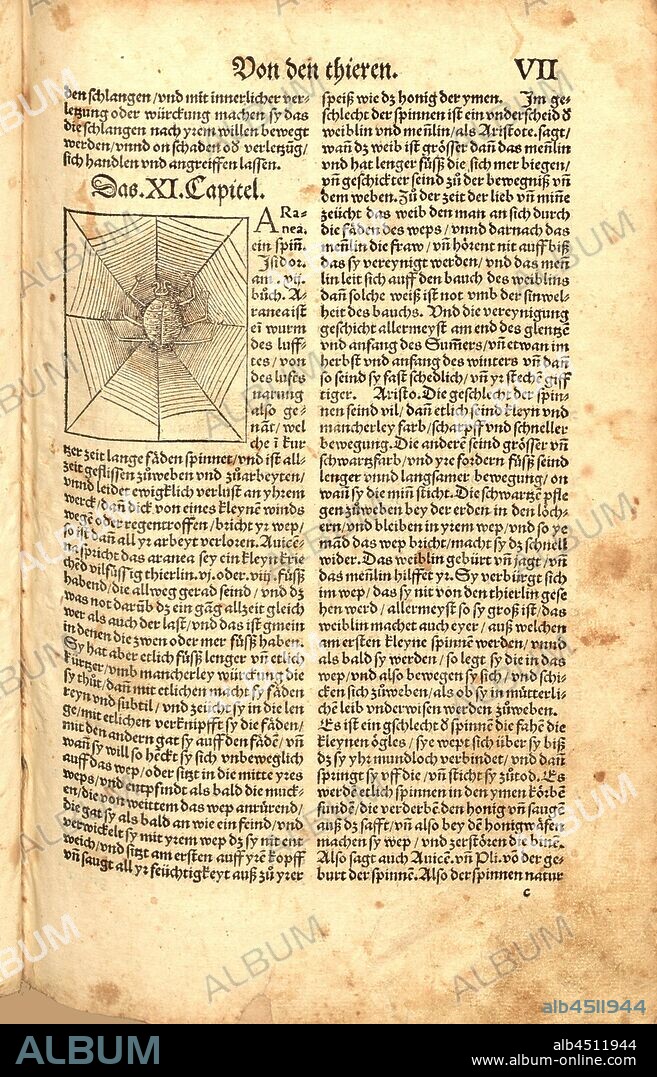 Von den thieren. VII
den schlangen/vnd mit innerlicher ver-
letzung oder würckung machen sy das
die schlangen nach yrem willen bewegt
werden/vnnd on schaden od̕ verletzūg/
sich handlen vnd angreiffen lassen.
Das. XI. Capitel.
ARa-
nea.
ein spiñ.
Isidor.
am. xij.
bůch. A-
ranea ist
eī wurm
des luff-
tes/von
des lufts
narung
also ge-
nāt/wel
che ī kur
tzer zeit lange fäden spinnet/vnd ist all-
zeit geflissen zůweben vnd zůarbeyten/
vnnd leidet ewigklich verlust an yhrem
werck/dañ dick von eines kleynē winds
wegē oder regentroffen/bricht yr wep/
so ist dañ all yr arbeyt verloren. Auicē-
na spricht das aranea sey ein kleyn krie
chēd vilfüssig thierlin. vj. oder. viij. füß
habend/die allweg gerad seind/vnd dz
was not darūb dz ein gāg allzeit gleich
wer als auch der last/vnd das ist gmein
in denen die zwen oder mer füß haben.
Sy hat aber etlich füß lenger vñ etlich
kürtzer/vmb mancherley würckung die
sy thůt/dañ mit etlichen macht sy fäden
reyn vnd subtil/vnd zeicht sy in die len
ge/mit etlichen verknipfft sy die fäden/
mit den andern gat sy auff den fädē/vñ
wañ sy will so hēckt sy sich vnbeweglich
auff das wep/oder sitzt in die mitte yres
weps/vnd entpfindt als bald die muck-
en/die von weittem das wep anrürend/
die gat sy als bald an wie ein feind/vnd
verwickelt sy mit yrem wep dz sy nit ent
weich/vnd sitzt am ersten auff yrē kopff
vñ saugt all yr feüchtigkeyt auß zů yrer
speiß wie dz honig der ymen. Im ge-
schlecht der spinnen ist ein vnderscheid d̕
weiblin vnd meñlin/als Aristote. sagt/
wañ dz weib ist grösser dañ das meñlin
vnd hat lenger füß die sich mer biegen/
vñ geschickter seind zů der bewegniß vñ
dem weben. Zů der zeit der lieb vñ miñe
zeücht das weib den man an sich durch
die fäden des weps/vnnd darnach das
meñlin die fraw/vñ hörent nit auff biß
das sy vereynigt werden/vnd das meñ
lin leit sich auff den bauch des weiblins
dañ solche weiß ist not vmb der sinwel-
heit des bauchs. Vnd die vereynigung
geschicht allermeyst am end des glentzē
vnd anfang des Sum̄ers/vñ etwan im
herbst vnd anfang des winters vñ dañ
so seind sy fast schedlich/vñ yr stechē giff
tiger. Aristo. Die geschlecht der spin-
nen seind vil/dañ etlich seind kleyn vnd
mancherley farb/scharpff vnd schneller
bewegung. Die anderē seind grösser vñ
schwartzfarb/vnd yre fordern füß seind
lenger vnnd langsamer bewegung/on
wañ sy die miñ sticht. Die schwartzē pfle
gen zůweben bey der erden in den löch-
ern/vnd bleiben in yrem wep/vnd so ye
mand das wep bricht/macht sy dz schnell
wider. Das weiblin gebürt vñ jagt/vñ
das meñlin hilffet yr. Sy verbürgt sich
im wep/das sy nit von den thierlin gese
hen werd/allermeyst so sy groß ist/das
weiblin machet auch eyer/auß welchen
am ersten kleyne spinnē werden/vnnd
als bald sy werden/so legt sy die in das
wep/vnd also bewegen sy sich/vnd schi-
cken sich zůweben/als ob sy in můtterli-
chē leib vnderwisen werden zůweben.
Es ist ein gschlecht d̕ spinnē die fahē die
kleynen ögles/sye wept sich über sy biß
dz sy yhr mundloch verbindet/vnd dañ
springt sy vff die/vñ sticht sy zůtod. Es
werdē etlich spinnen in den ymen körbē
fundē/die verderbē den honig vñ saugē
auß dz safft/vñ also bey dē honigwäfen
machen sy wep/vnd zerstören die binē.
Also sagt auch Auicē. vñ Pli. vō der ge-
burt der spinnē. Also der spinnen natur
c
alb4511944
ALBUM
alb4511944
www.album-online.com